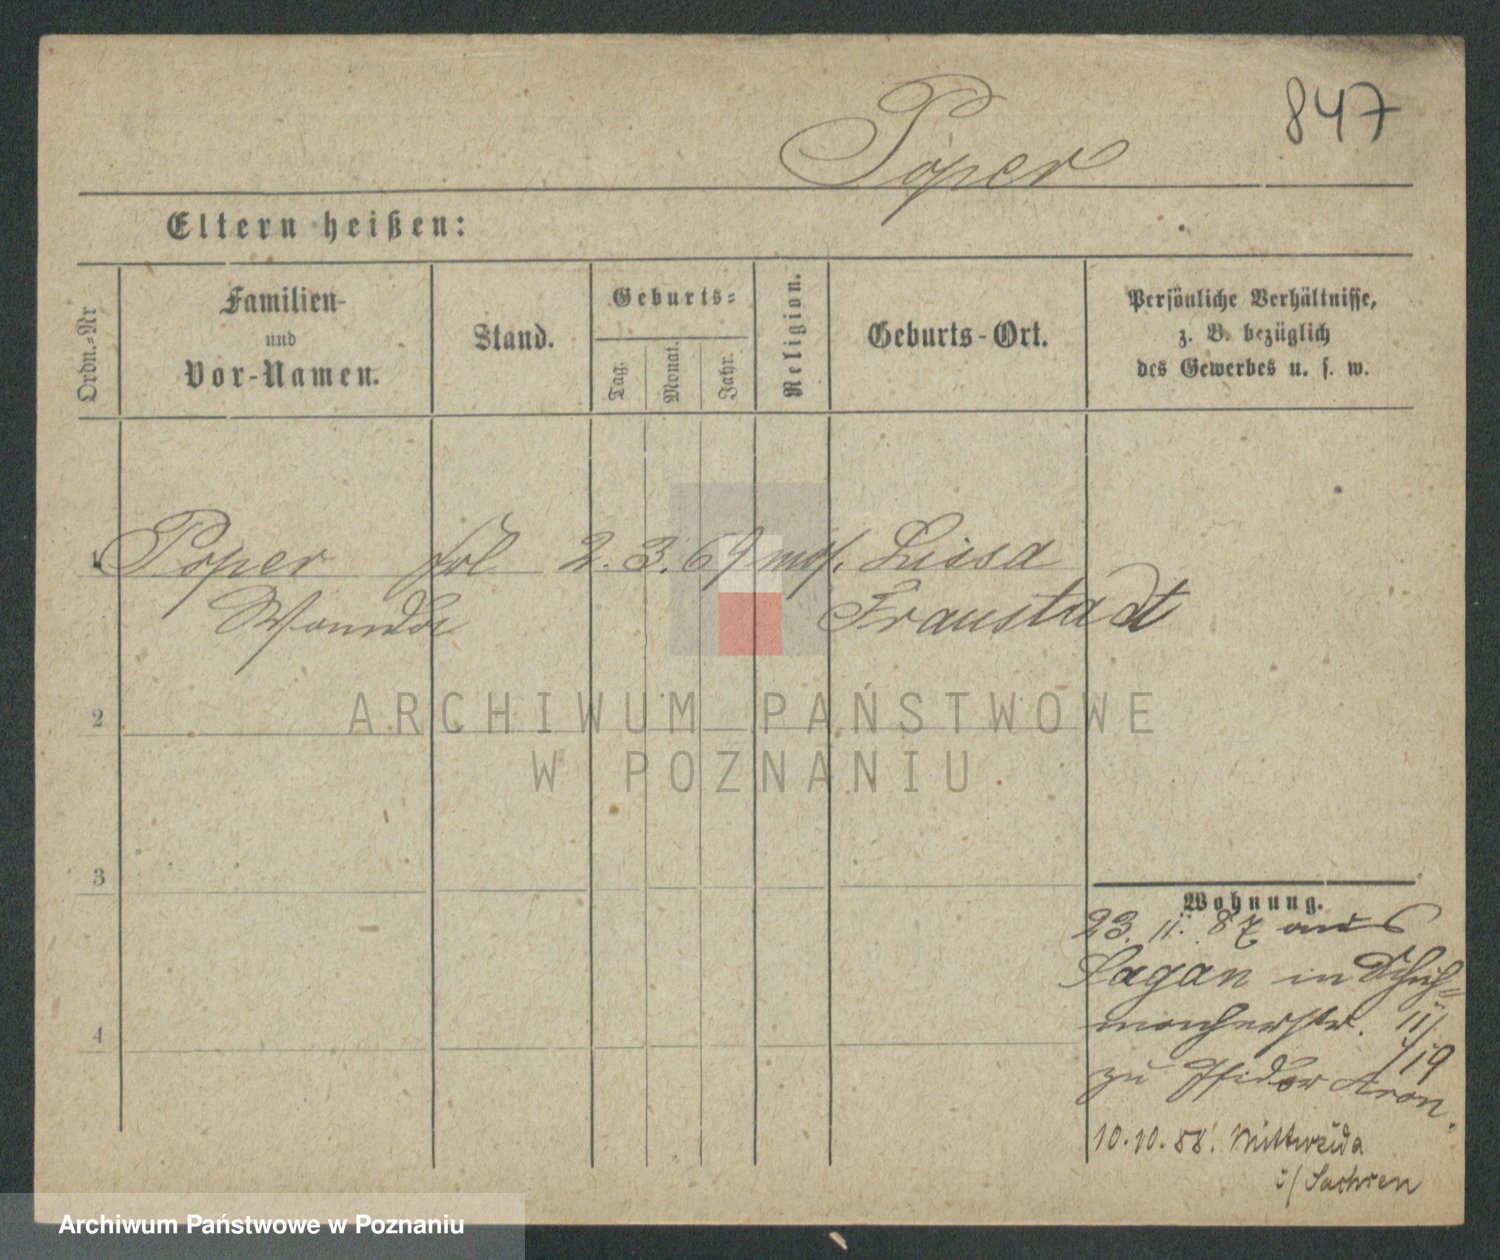 847
Poper
Eltern heißen:
Ordn.-Nr
Familien-
und
Vor-Namen.
Stand.
Geburts-
Tag.
Monat.
Jahr.
Religion.
Geburts-Ort.
Persönliche Verhältnisse,
z. B. bezüglich
des Gewerbes u. s. w.
1 Poper Frl 2. 3. 69 mos. Lissa
Wanda Fraustadt
2
3
4
Wohnung.
23. 11. 87 aus
Sagan in Schuh-
macherstr. 11/
/19
zu Isidor Aron.
10.10.88. Mittweida
i/Sachsen
ARCHIWUM PAŃSTWOWE
W POZNANIU
Archiwum Państwowe w Poznaniu